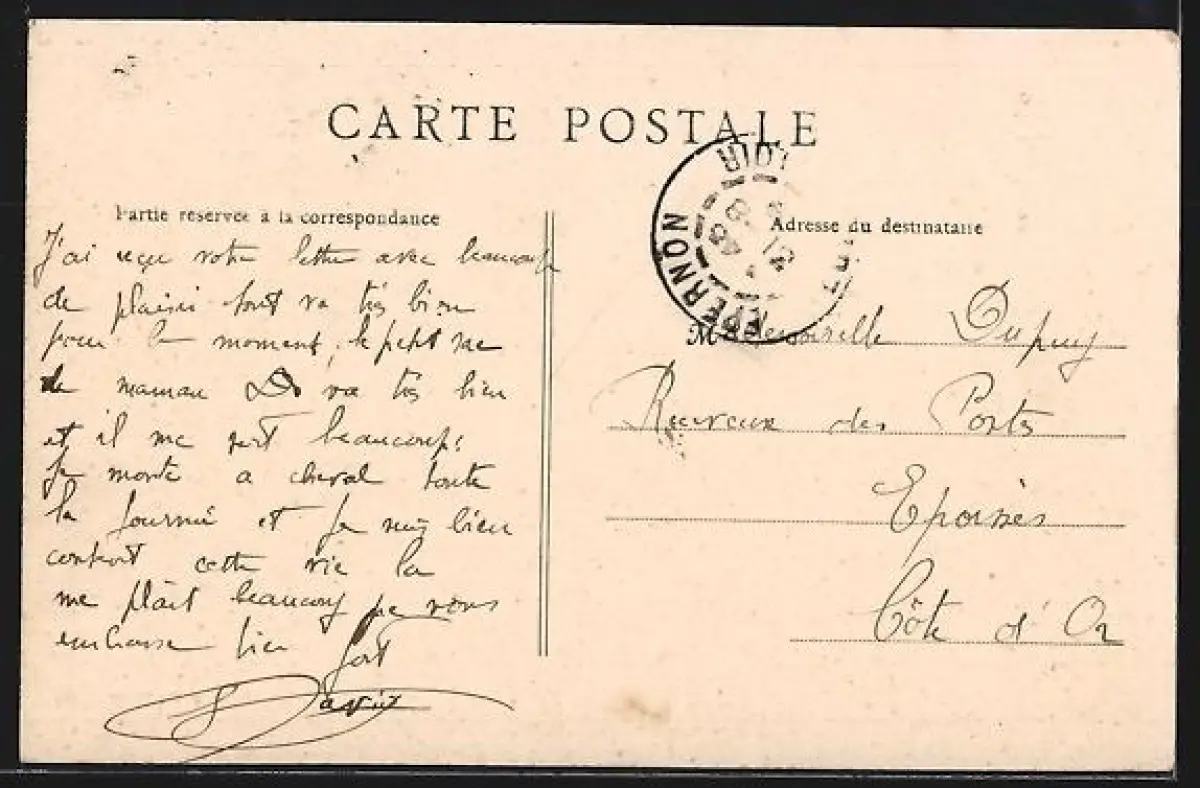 CARTE POSTALE
Partie réservée à la correspondance
J'ai reçu votre lettre avec beaucoup
de plaisir tout va très bien
pour le moment, le petit sac
de maman va très bien
et il me sert beaucoup.
Je monte a cheval toute
la journée et je suis bien
content cette vie la
me plait beaucoup je vous
embrasse bien fort
EPERNON
Adresse du destinataire
Mademoiselle Dupuy
Receveuse des Postes
Epoisses
Côte d'Or